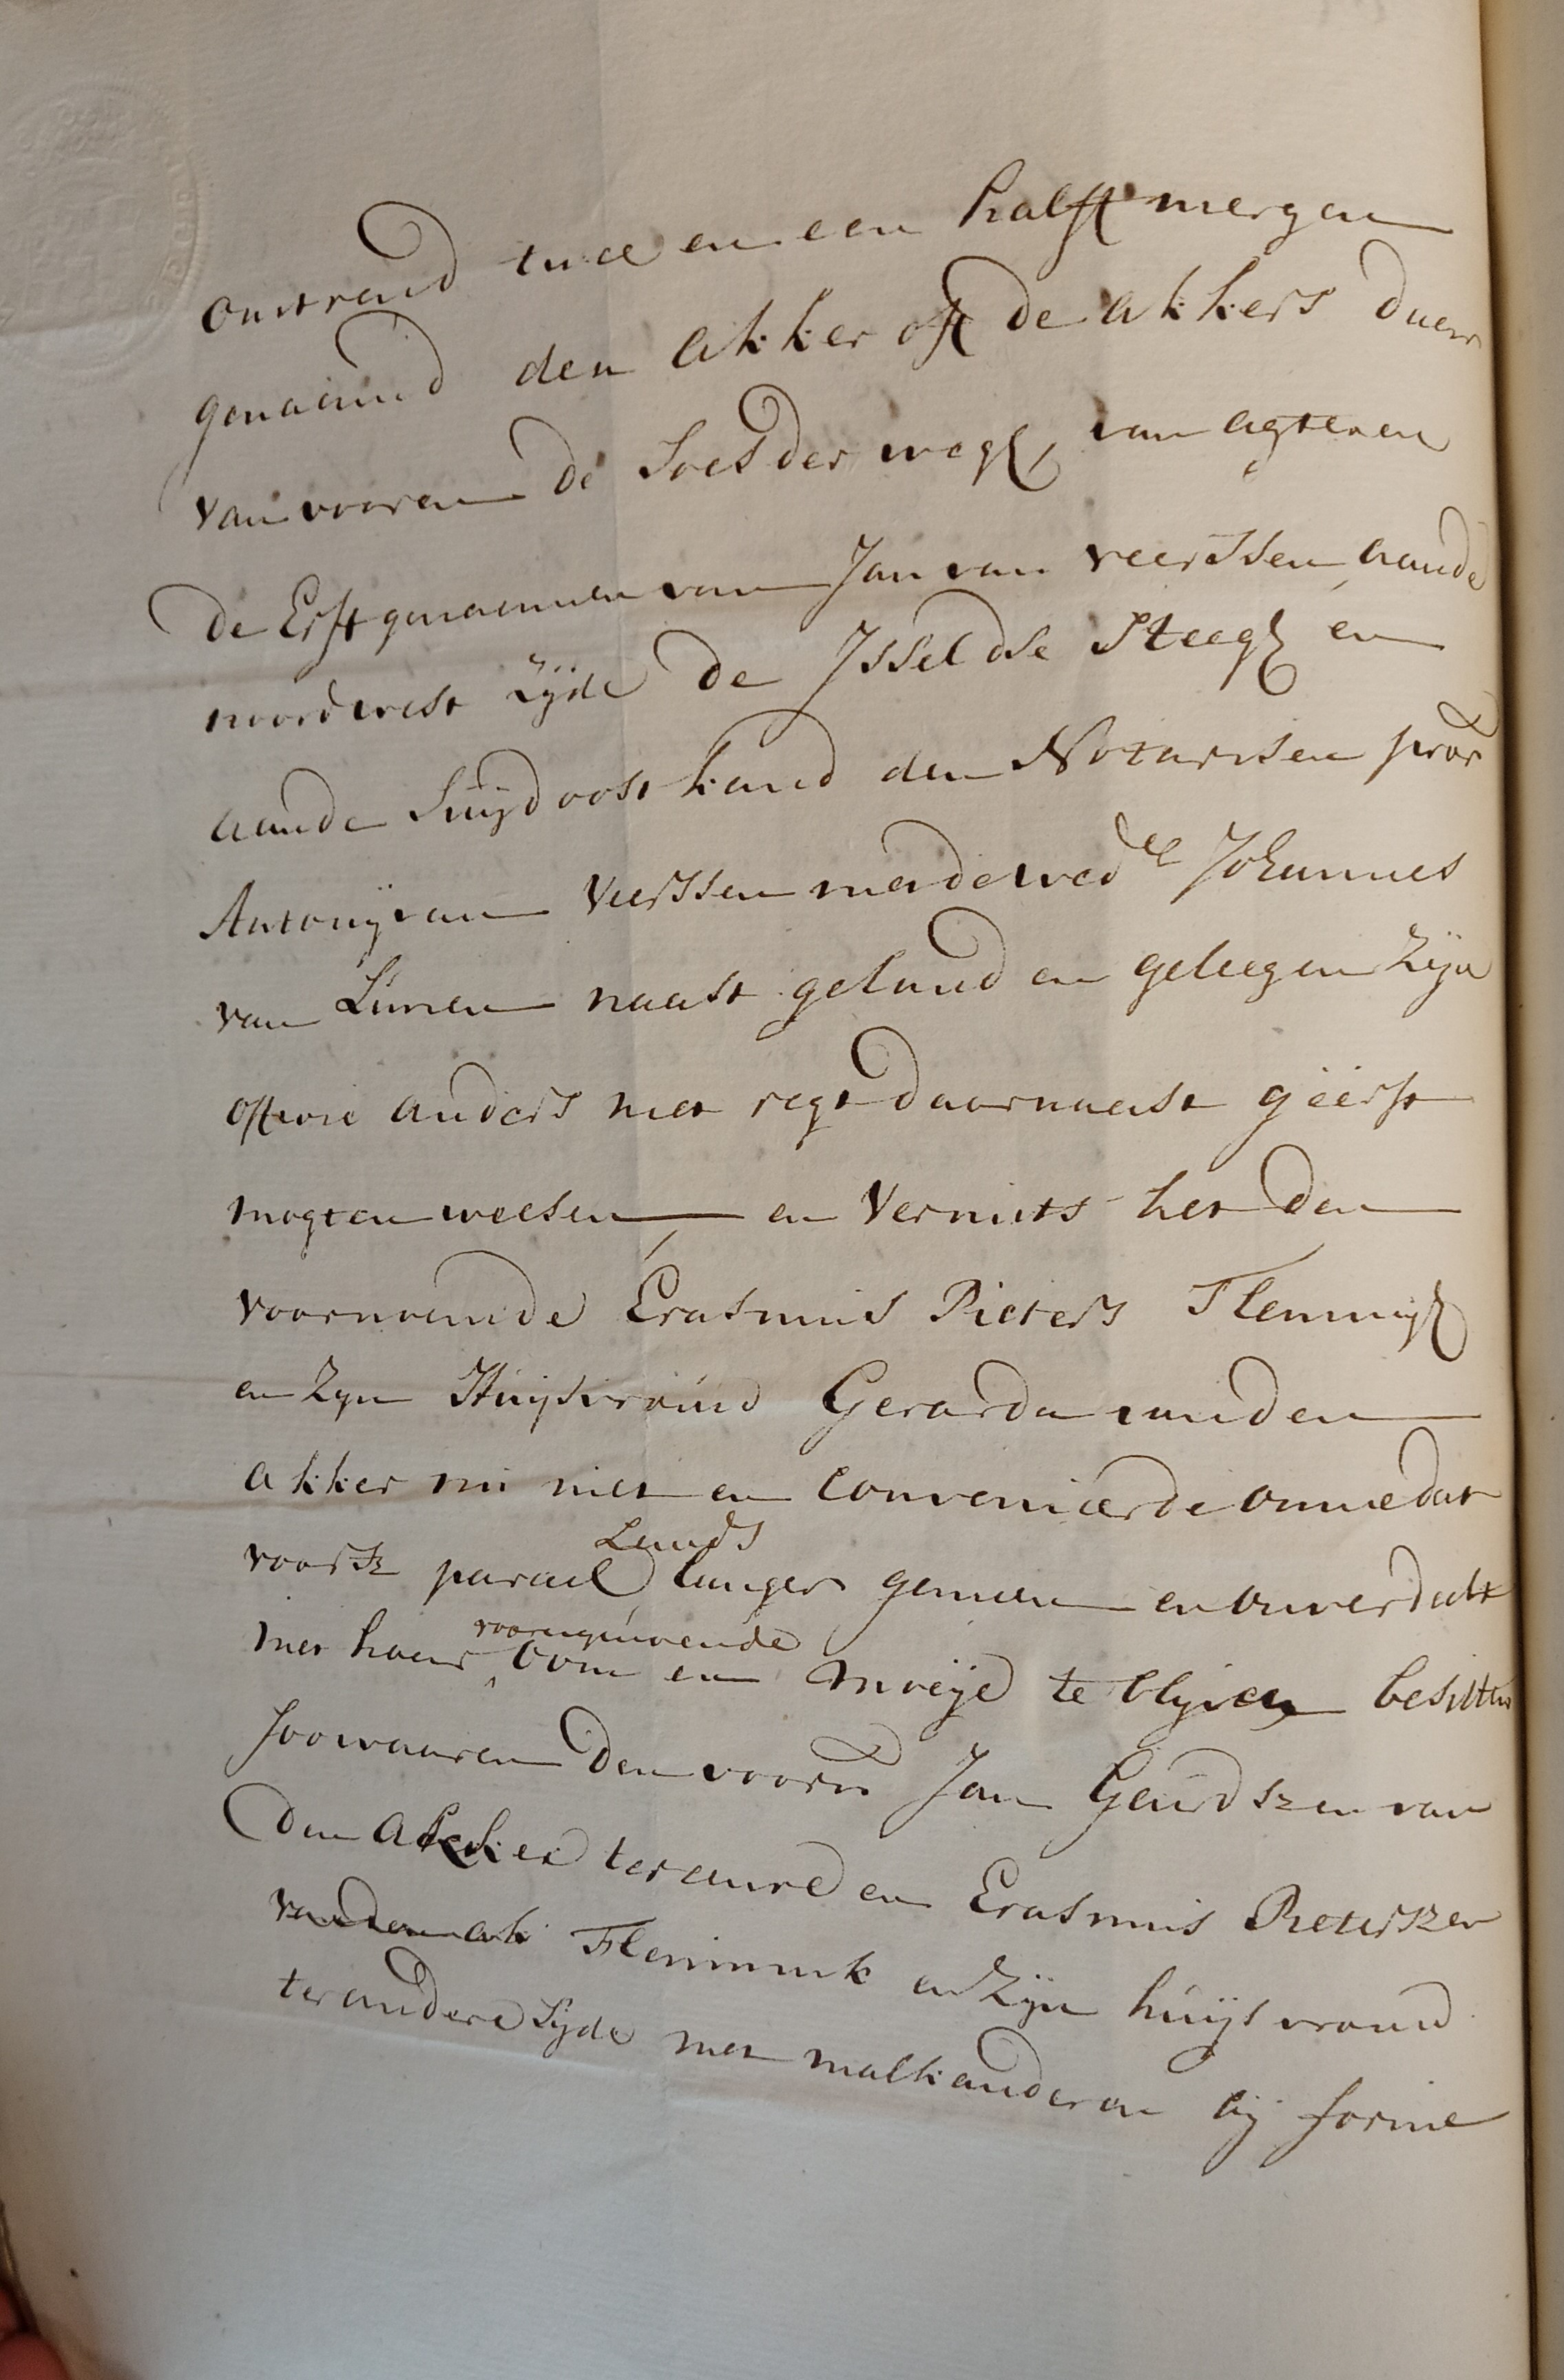 omtrend twee en een halfft mergen
genaemd den akker oft de akkers daer
van vooren de Soesder wegh, van agteren
de Erftgenaemen van Jan van veerssen, aande
noordwest zÿde de Jsseldse Steegh en
aande Suÿdoost kand den Notarisen pror
Antonÿ van Veerssen mende wed.ee Johannes
van Lúnen naast geland en geleegen zÿn
oft wie anders met regt daarnaest geërft
mogten weesen, en Vermits het den
voornoemde Erasmus Pieters Flemmigh
en zyn Huÿsvrouw Gerarda van den
akker nu niet en Convenieerde omme dat
voorsz parceel Lands langer gemeen en onverdeelt
met haer voorengemende oom en moeÿe te blyven besitten
soo waaren den voorn Jan Gerridszen van
den akker ter eenre en Erasmus Pieterszen
van den ak Flemmink en Zÿn huÿsvrouw
ter andere Sÿde met malkanderen bÿ forme